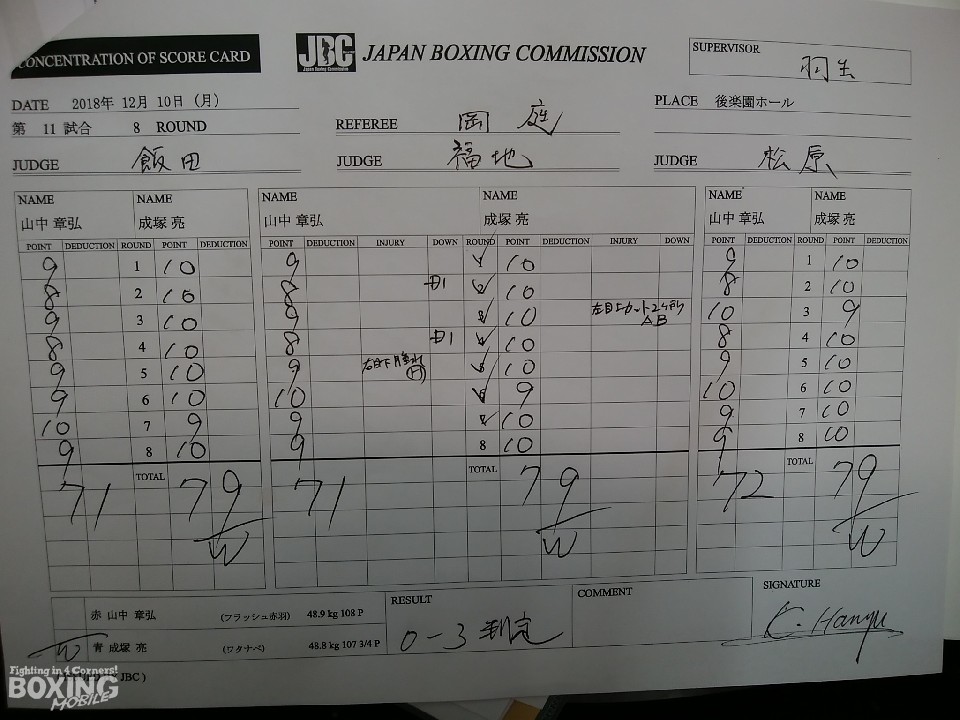 CONCENTRATION OF SCORE CARD
JBC
Japan Boxing Commission
JAPAN BOXING COMMISSION
SUPERVISOR 羽生
DATE 2018年 12月 10日 (月)
PLACE 後楽園ホール
第 11 試合 8 ROUND
REFEREE 岡庭
JUDGE 飯田
JUDGE 福地
JUDGE 松原
NAME NAME NAME NAME NAME NAME
山中 章弘 成塚 亮 山中 章弘 成塚 亮 山中 章弘 成塚 亮
POINT DEDUCTION ROUND POINT DEDUCTION POINT DEDUCTION INJURY DOWN ROUND POINT DEDUCTION INJURY DOWN POINT DEDUCTION ROUND POINT DEDUCTION
9 1 10 9 1 10 9 1 10
8 2 10 8 1 2 10 8 2 10
9 3 10 9 3 10 左目上カット2ヶ所 AB 10 3 9
8 4 10 8 1 4 10 8 4 10
9 5 10 9 右目下 5 10 9 5 10
9 6 10 10 6 9 10 6 10
10 7 9 9 7 10 9 7 10
9 8 10 9 8 10 9 8 10
71 TOTAL 79 71 TOTAL 79 72 TOTAL 79
W W W
赤 山中 章弘 (フラッシュ赤羽) 48.9 kg 108 P
W 青 成塚 亮 (ワタナベ) 48.8 kg 107 3/4 P
RESULT
0-3 判定
COMMENT
SIGNATURE
K. Hanyu
JBC )
Fighting in 4 Corners!
BOXING
MOBILE